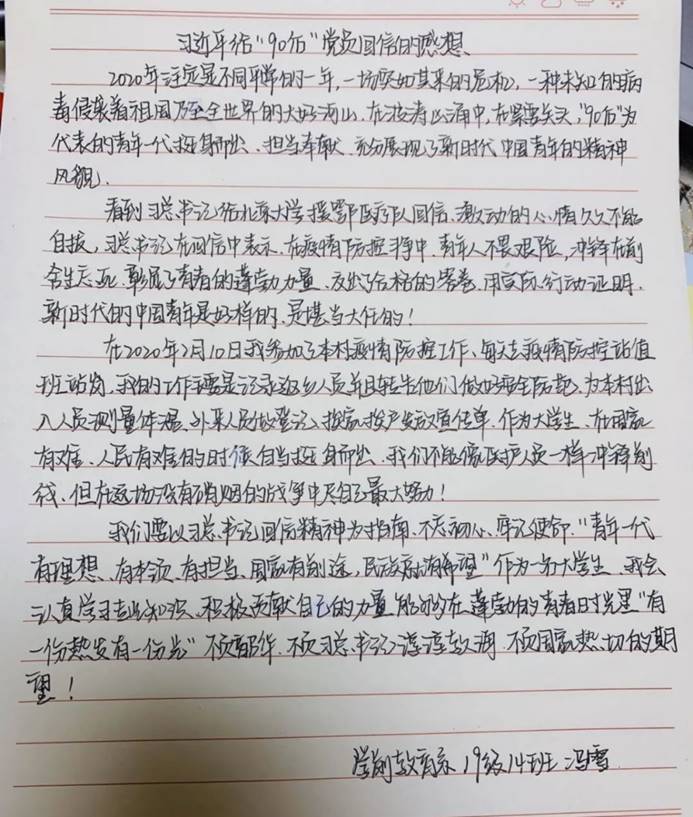 习近平给“90后”党员回信的感想
2020年注定是不同平常的一年，一场突如其来的危机，一种未知的病
毒侵袭着祖国乃至全世界的大好河山，在波涛汹涌中，在紧要关头，“90后”为
代表的青年一代挺身而出、担当奉献、充分展现了新时代中国青年的精神
风貌。
看到习总书记给北京大学援鄂医疗队回信，激动的心情久久不能
自拔，习总书记在回信中表示，在疫情防控斗争中，青年人不畏艰险，冲锋在前
舍生忘死，彰显了青春的蓬勃力量，交出了合格的答卷，用实际行动证明，
新时代的中国青年是好样的，是堪当大任的！
在2020年2月10日我参加了本村疫情防控工作、每天去疫情防控站值
班站岗，我的工作主要是记录返乡人员并且转告他们做好安全防范，为本村出
入人员测量体温、外来人员做登记、挨家挨户发放宣传单，作为大学生、在国家
有难、人民有难的时候自当挺身而出、我们不能像医护人员一样冲锋前
线、但在这场没有消烟的战争中尽自己最大努力！
我们要以习总书记回信精神为指南、不忘初心、牢记使命、“青年一代
有理想、有本领、有担当、国家有前途，民族就有希望”作为一名大学生、我会
认真学习专业知识、积极贡献自己的力量能够在蓬勃的青春时光里“有
一份热发有一份光”不负韶华、不负习总书记谆谆教诲、不负国家热切的期
望！
学前教育系19级14班冯雪